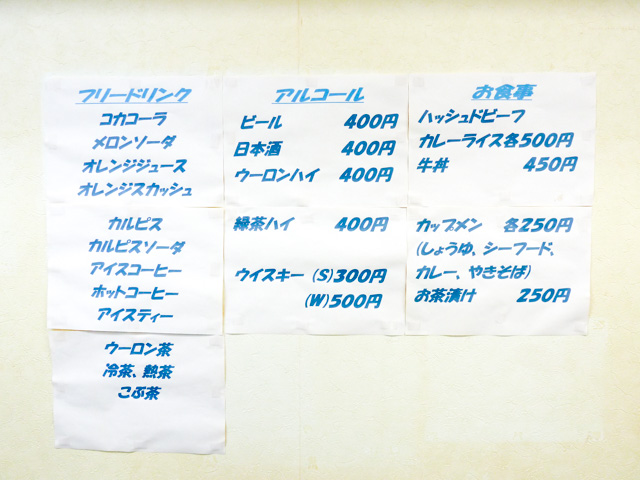 フリードリンク
コカコーラ
メロンソーダ
オレンジジュース
オレンジスカッシュ
カルピス
カルピスソーダ
アイスコーヒー
ホットコーヒー
アイスティー
ウーロン茶
冷茶、熱茶
こぶ茶
アルコール
ビール 400円
日本酒 400円
ウーロンハイ 400円
緑茶ハイ 400円
ウイスキー (S)300円
(W)500円
お食事
ハッシュドビーフ
カレーライス各500円
牛丼 450円
カップメン 各250円
(しょうゆ、シーフード、
カレー、やきそば)
お茶漬け 250円